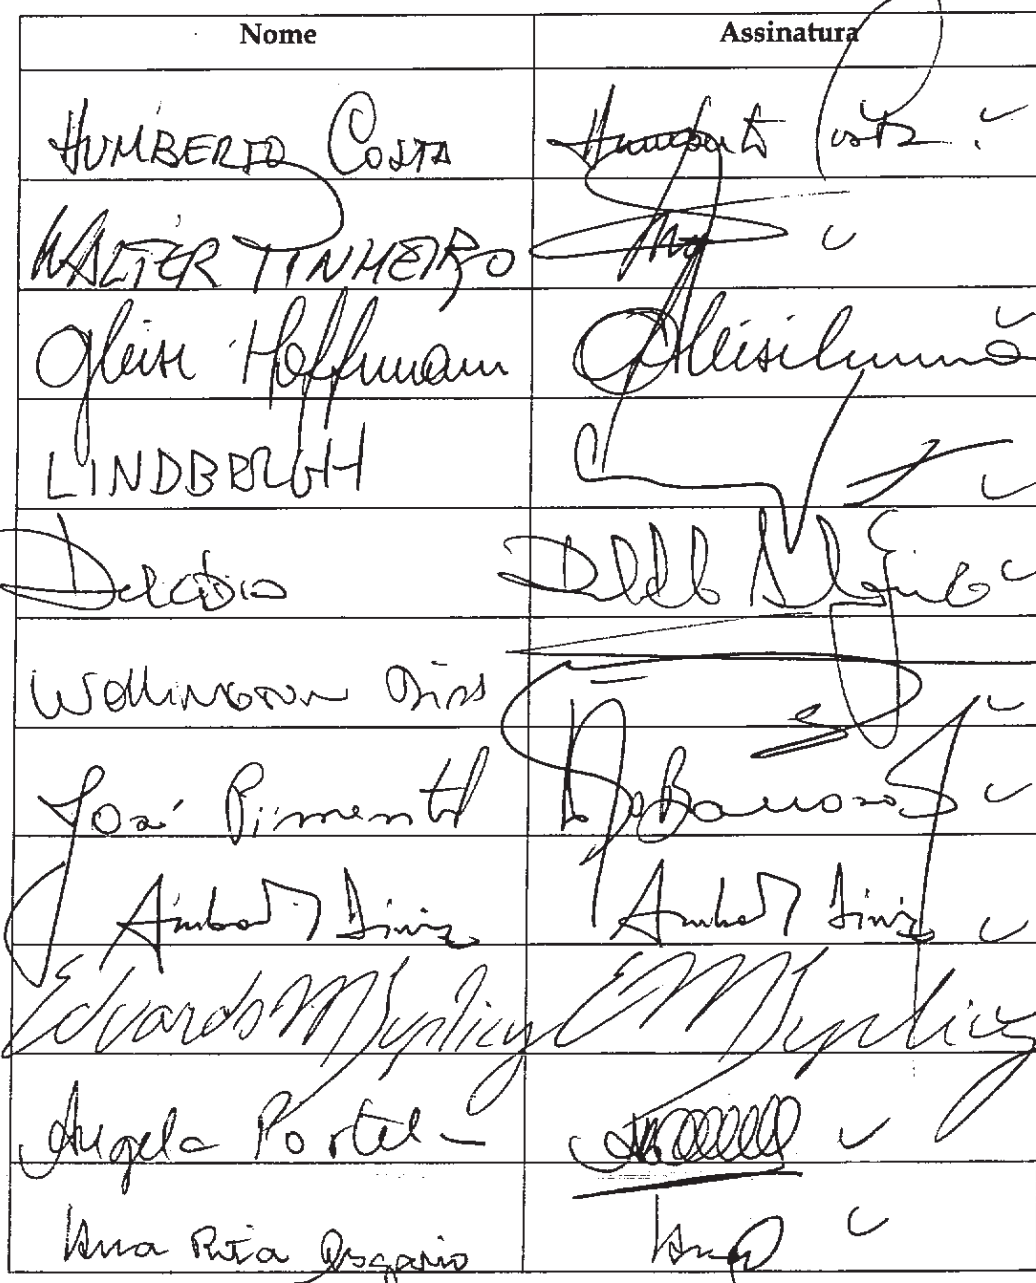 Nome Assinatura
HUMBERTO COSTA Humberto Costa
WALTER PINHEIRO
Gleisi Hoffmann Gleisi
LINDBERGH
Delcídio
Wellington Dias
José Pimentel J Barroso
Anibal Diniz Anibal Diniz
Eduardo M Suplicy E M Suplicy
Angela Portela
Ana Rita Esgario Ana